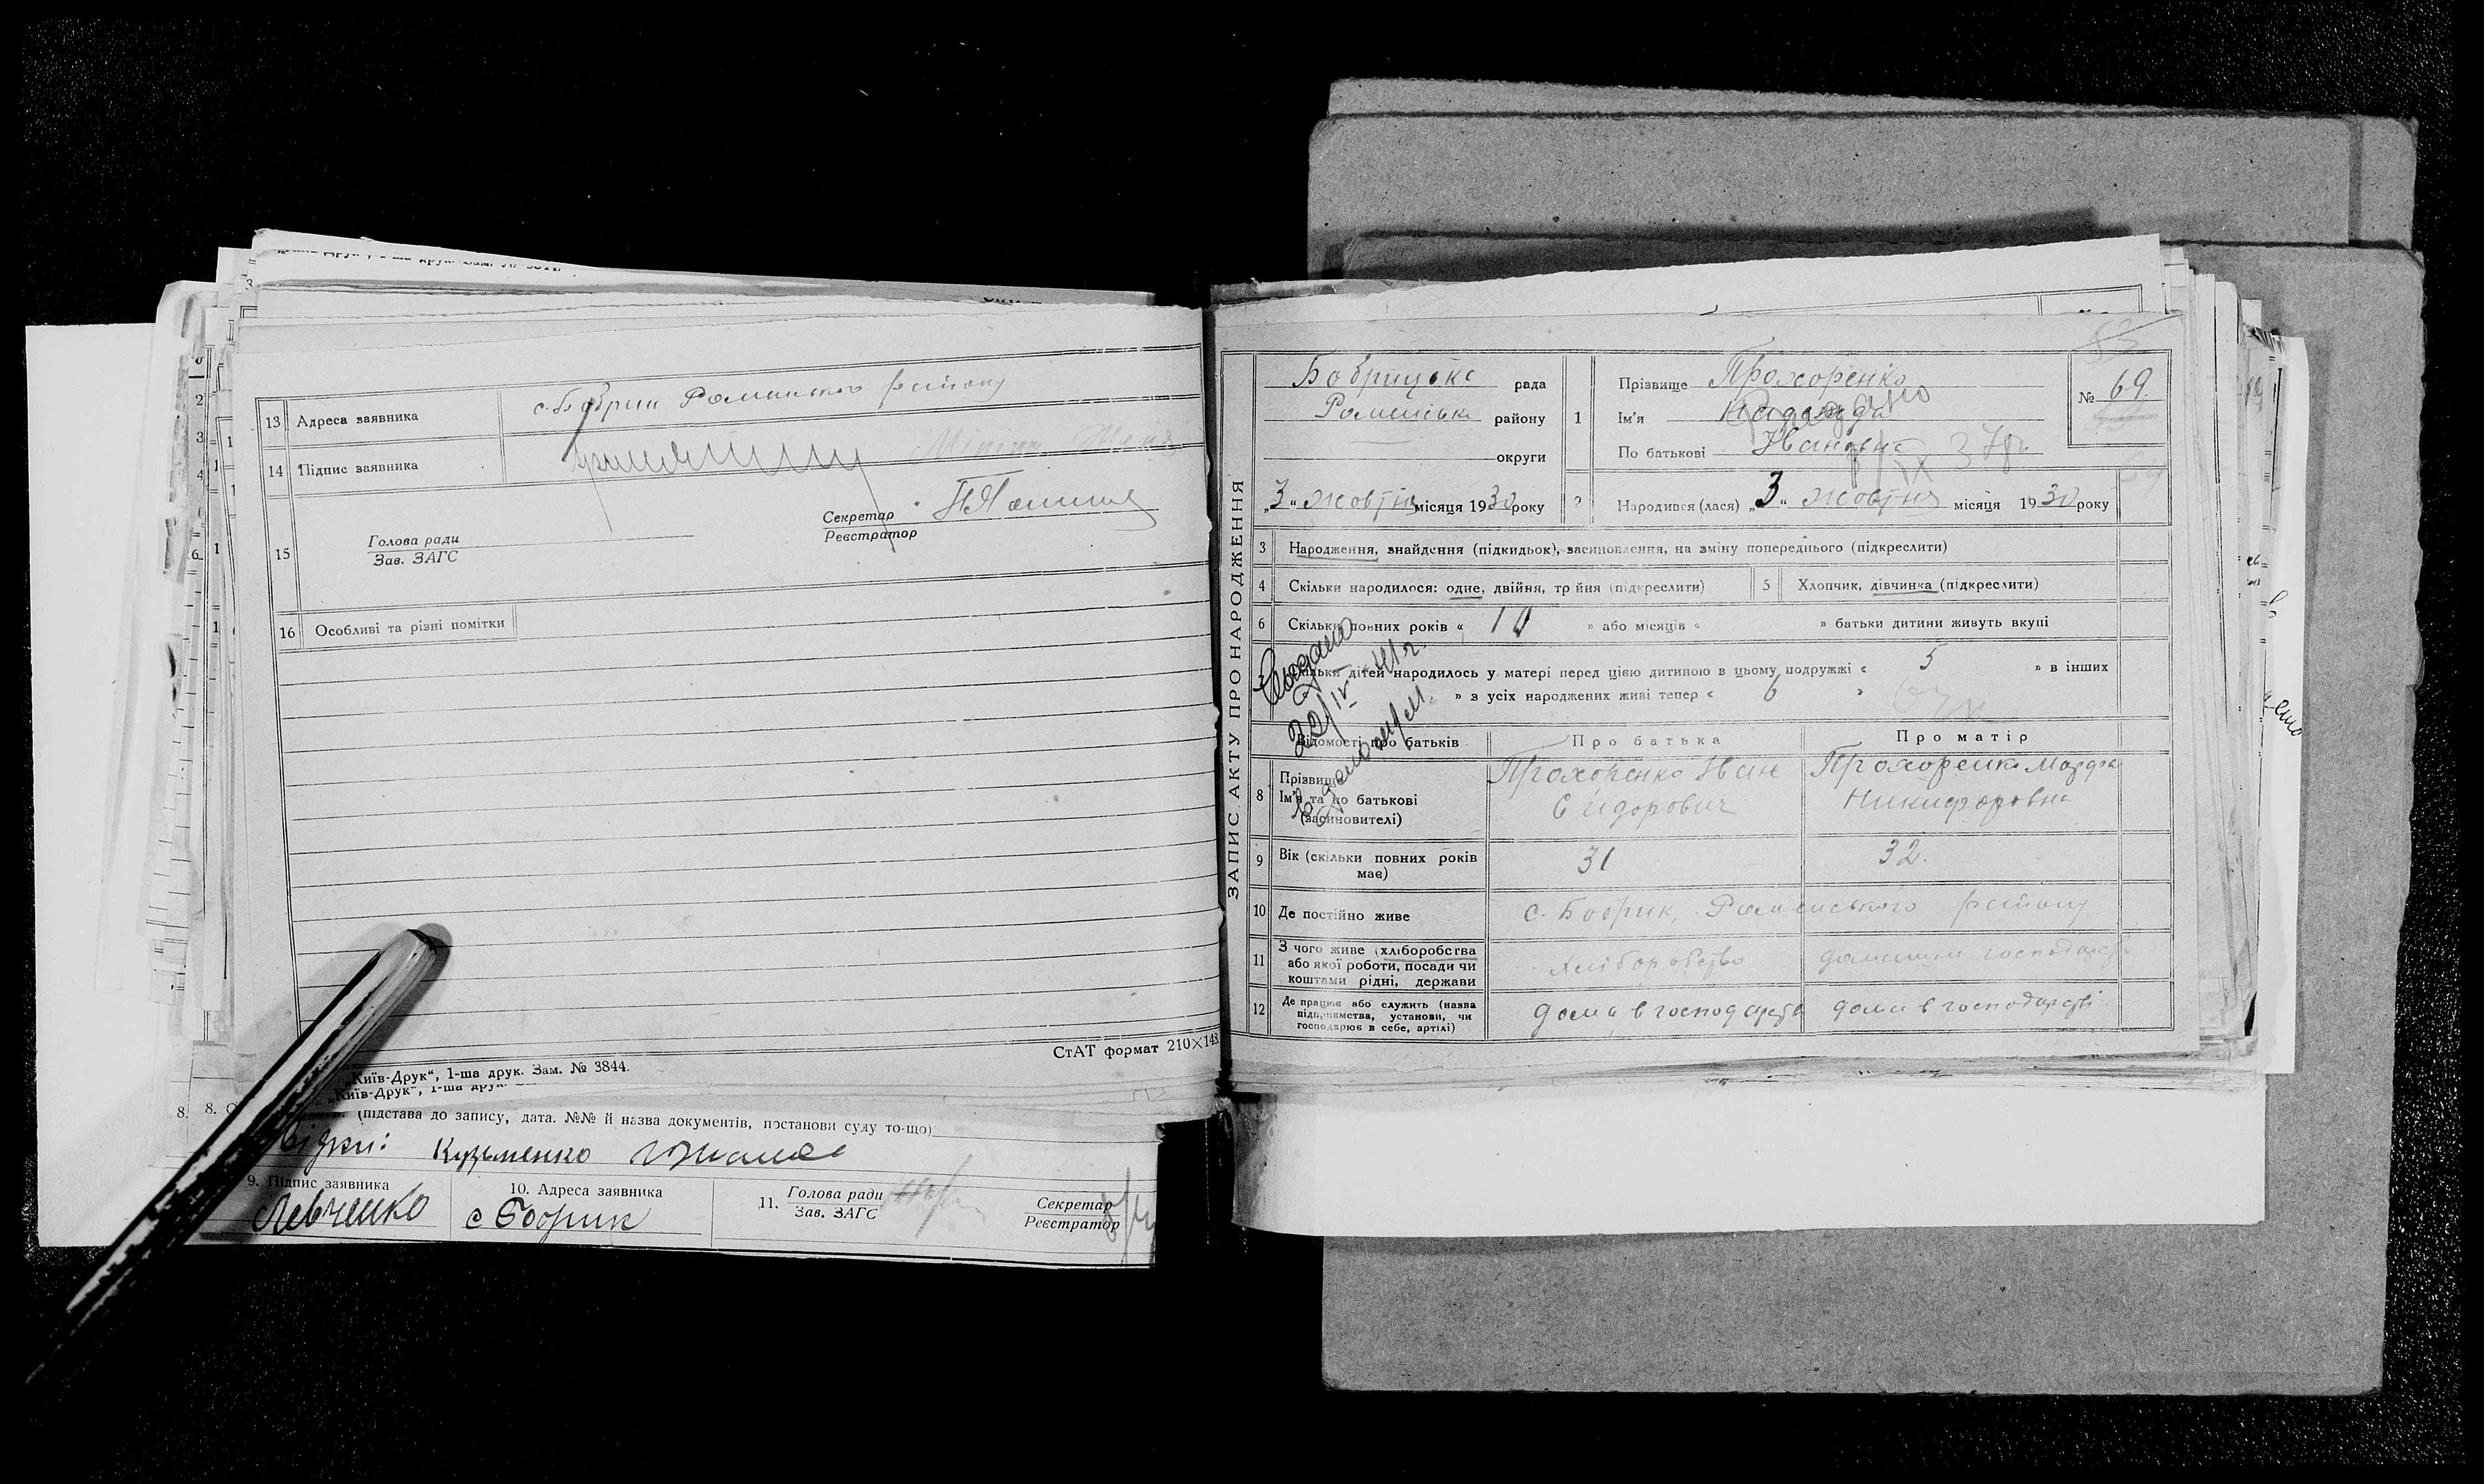 13 Адреса заявника с. Бобрик Роменського району
14 Підпис заявника
Секретар
Реєстратор
15 Голова ради
Зав. ЗАГС
16 Особливі та різні помітки
СтАТ формат 210×148
„Київ-Друк“, 1-ша друк. Зам. № 3844.
„Київ-Друк“, 1-ша друк.
8. (підстава до запису, дата. №№ й назва документів, постанови суду то-що)
Кузьменко
9. Підпис заявника 10. Адреса заявника 11. Голова ради
Зав. ЗАГС
Секретар
Реєстратор
Левченко с Бобрик
ЗАПИС АКТУ ПРО НАРОДЖЕННЯ
Бобрицька рада
Роменськ району
округи
„3“ жовтня місяця 1930 року
1 Прізвище Прохоренко
Ім'я Надежда
По батькові Івановна
№ 69
2 Народився (лася) „3“ жовтня місяця 1930 року
3 Народження, знайдення (підкидьок), засиновлення, на зміну попереднього (підкреслити)
4 Скільки народилося: одне, двійня, трійня (підкреслити) 5 Хлопчик, дівчинка (підкреслити)
6 Скільки повних років « 10 » або місяців « » батьки дитини живуть вкупі
Скільки дітей народилось у матері перед цією дитиною в цьому подружжі « 5 » в інших
» з усіх народжених живі тепер « 6 »
Відомості про батьків Про батька Про матір
8 Прізвище
Ім'я та по батькові
(засиновителі)
Прохоренко Іван
Сидорович
Прохоренко Марфа
Никифоровна
9 Вік (скільки повних років має) 31 32.
10 Де постійно живе с. Бобрик, Роменського району
11 З чого живе (хліборобства
або якої роботи, посади чи
коштами рідні, держави
хліборобство
12 Де працює або служить (назва
підприємства, установи, чи
господарює в себе, артілі)
дома в господарстві дома в господарстві